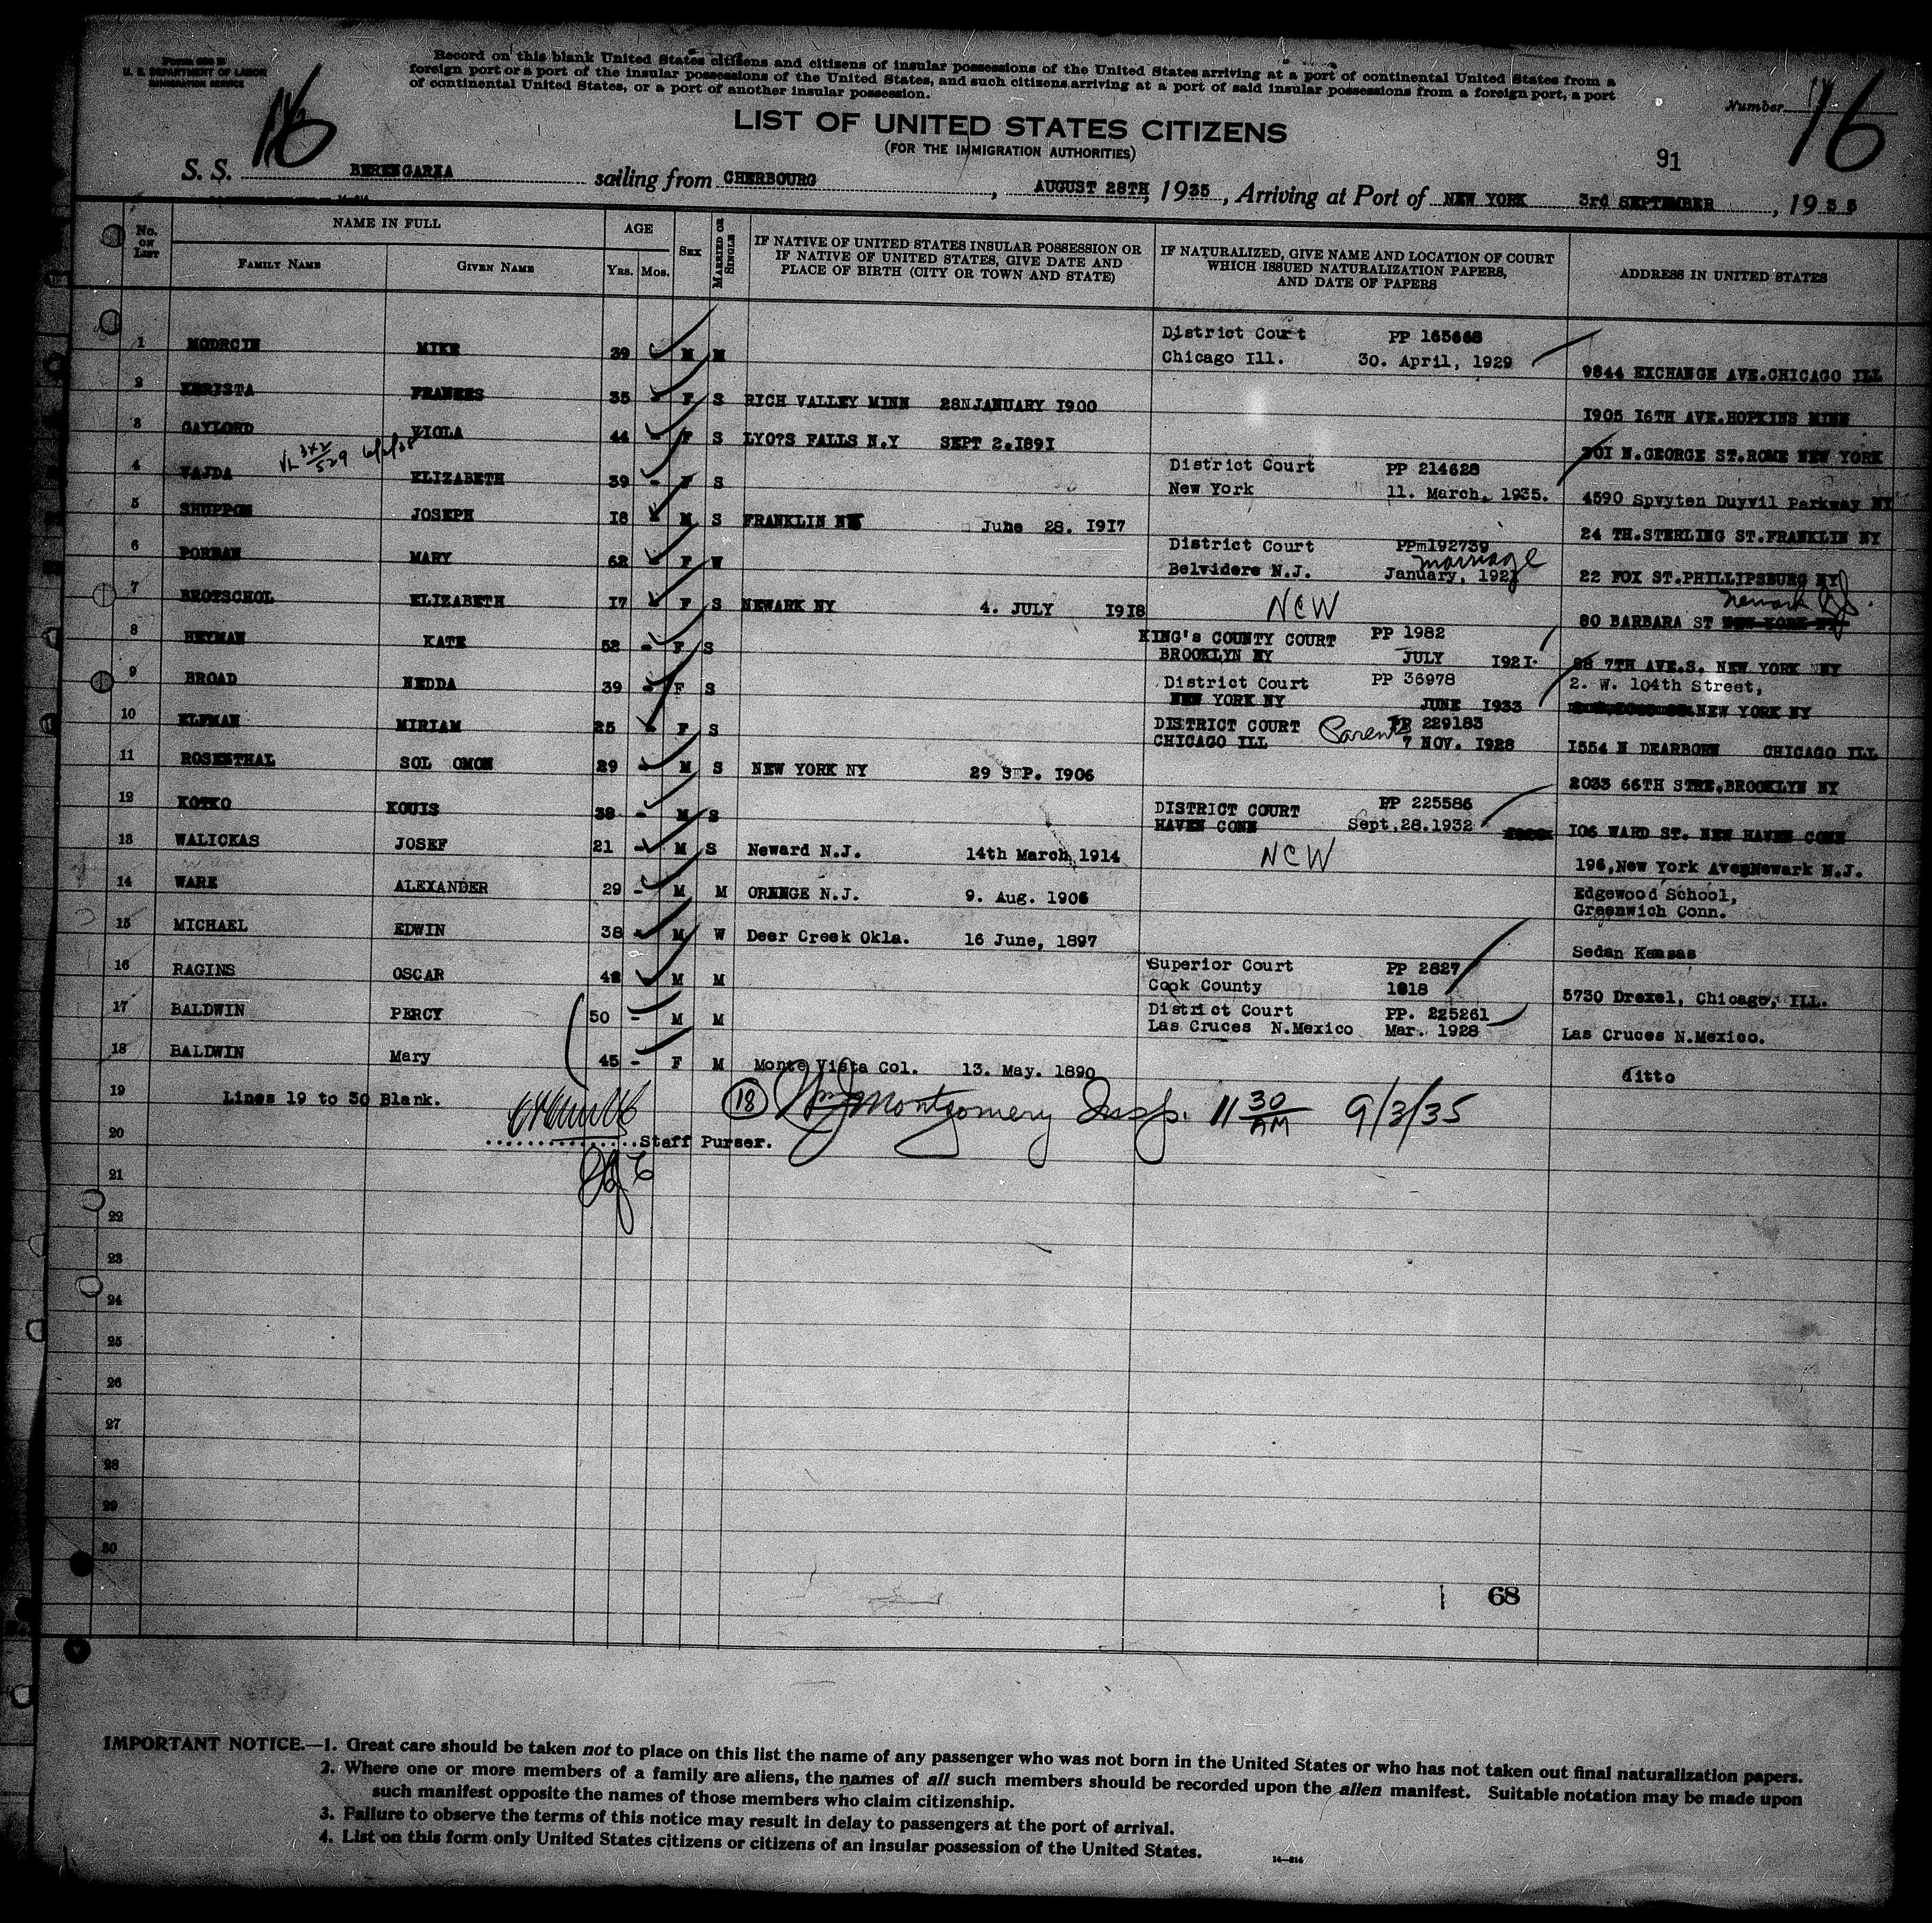 Form 630 B
U. S. DEPARTMENT OF LABOR
IMMIGRATION SERVICE
Record on this blank United States citizens and citizens of insular possessions of the United States arriving at a port of continental United States from a
foreign port or a port of the insular possessions of the United States, and such citizens arriving at a port of said insular possessions from a foreign port, a port
of continental United States, or a port of another insular possession.
16
Number 16
LIST OF UNITED STATES CITIZENS
(FOR THE IMMIGRATION AUTHORITIES)
91
S. S. BERENGARIA sailing from CHERBOURG, AUGUST 28TH, 1935, Arriving at Port of NEW YORK 3rd SEPTEMBER, 1935
No. on List NAME IN FULL AGE SEX MARRIED OR SINGLE IF NATIVE OF UNITED STATES INSULAR POSSESSION OR IF NATIVE OF UNITED STATES, GIVE DATE AND PLACE OF BIRTH (CITY OR TOWN AND STATE) IF NATURALIZED, GIVE NAME AND LOCATION OF COURT WHICH ISSUED NATURALIZATION PAPERS, AND DATE OF PAPERS ADDRESS IN UNITED STATES
FAMILY NAME GIVEN NAME YRS. MOS.
1 MODRCIN MIKE 39 M M District Court PP 165668
Chicago Ill. 30. April, 1929 9844 EXCHANGE AVE.CHICAGO ILL
2 KERISTA FRANCES 35 F S RICH VALLEY MINN 28NJANUARY 1900 1905 16TH AVE.HOPKINS MINN
3 GAYLORD VIOLA 44 F S LYO?S FALLS N.Y SEPT 2.1891 N.GEORGE ST.ROME NEW YORK
4 VAJDA ELIZABETH 39 - F S District Court PP 214628
New York 11. March, 1935. 4590 Spvyten Duyvil Parkway NY
5 SHUPPON JOSEPH 18 M S FRANKLIN June 28. 1917 24 TH.STERLING ST.FRANKLIN NY
6 MARY 62 F W District Court PPm192739
marriage
Belvidere N.J. January, 192 22 FOX ST.PHILLIPSBURG
7 BROTSCHOL ELIZABETH 17 F S NEWARK NY 4. JULY 1918 NCW 80 BARBARA ST Newark NJ.
8 HEYMAN KATE 52 - F S KING's COUNTY COURT PP 1982
BROOKLYN NY JULY 1921. 7TH AVE.S. NEW YORK NY
9 BROAD NEDDA 39 F S District Court PP 36978 2. W. 104th Street,
NEW YORK NY JUNE 1933 NEW YORK NY
10 ELFMAN MIRIAM 25 F S DISTRICT COURT Parents PP 229183
CHICAGO ILL 7 NOV. 1928 1554 N DEARBORN CHICAGO ILL
11 ROSENTHAL SOL OMON 29 M S NEW YORK NY 29 SEP. 1906 2033 66TH STRE,BROOKLYN NY
12 KOTKO KOUIS 38 - M S DISTRICT COURT PP 225586
HAVEN CONN Sept.28.1932 106 WARD ST. NEW HAVEN CONN
13 WALICKAS JOSEF 21 - M S Neward N.J. 14th March, 1914 NCW 196,New York Ave,Newark N.J.
14 WARE ALEXANDER 29 - M M ORENGE N.J. 9. Aug. 1906 Edgewood School,
Greenwich Conn.
15 MICHAEL EDWIN 38 - M W Deer Creek Okla. 16 June, 1897 Sedan Kansas
16 RAGINS OSCAR 42 M M Superior Court PP 2827
Cook County 1918 5730 Drexel, Chicago, ILL.
17 BALDWIN PERCY 50 - M M District Court PP. 225261
Las Cruces N.Mexico Mar. 1928 Las Cruces N.Mexico.
18 BALDWIN Mary 45 - F M Monte Vista Col. 13. May. 1890 ditto
19 Lines 19 to 30 Blank. (18) Wm J Montgomery Insp. 11 30 AM 9/3/35
20 Staff Purser.
21
22
23
24
25
26
27
28
29
30
68
IMPORTANT NOTICE.—1. Great care should be taken not to place on this list the name of any passenger who was not born in the United States or who has not taken out final naturalization papers.
2. Where one or more members of a family are aliens, the names of all such members should be recorded upon the alien manifest. Suitable notation may be made upon
such manifest opposite the names of those members who claim citizenship.
3. Failure to observe the terms of this notice may result in delay to passengers at the port of arrival.
4. List on this form only United States citizens or citizens of an insular possession of the United States.
14—814